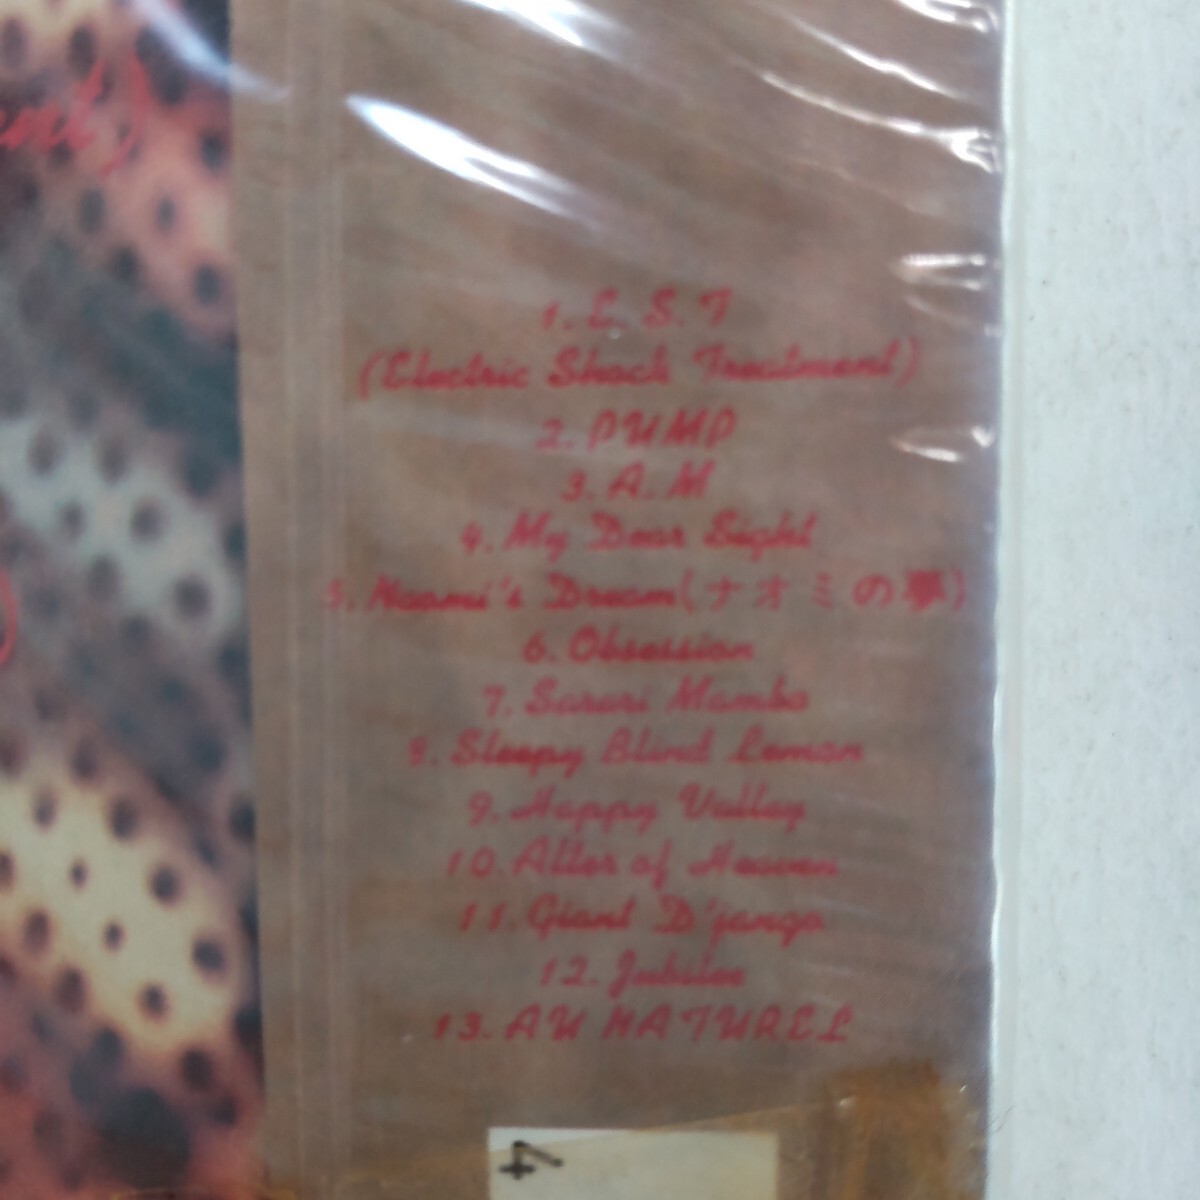 1. E. S. T
(Electric Shock Treatment)
2. PUMP
3. A. M
4. My Dear Sight
5. Naomi's Dream(ナオミの夢)
6. Obsession
7. Sarari Mambo
8. Sleepy Blind Lemon
9. Happy Valley
10. Alter of Heaven
11. Giant D'jango
12. Jubilee
13. AU NATUREL
4